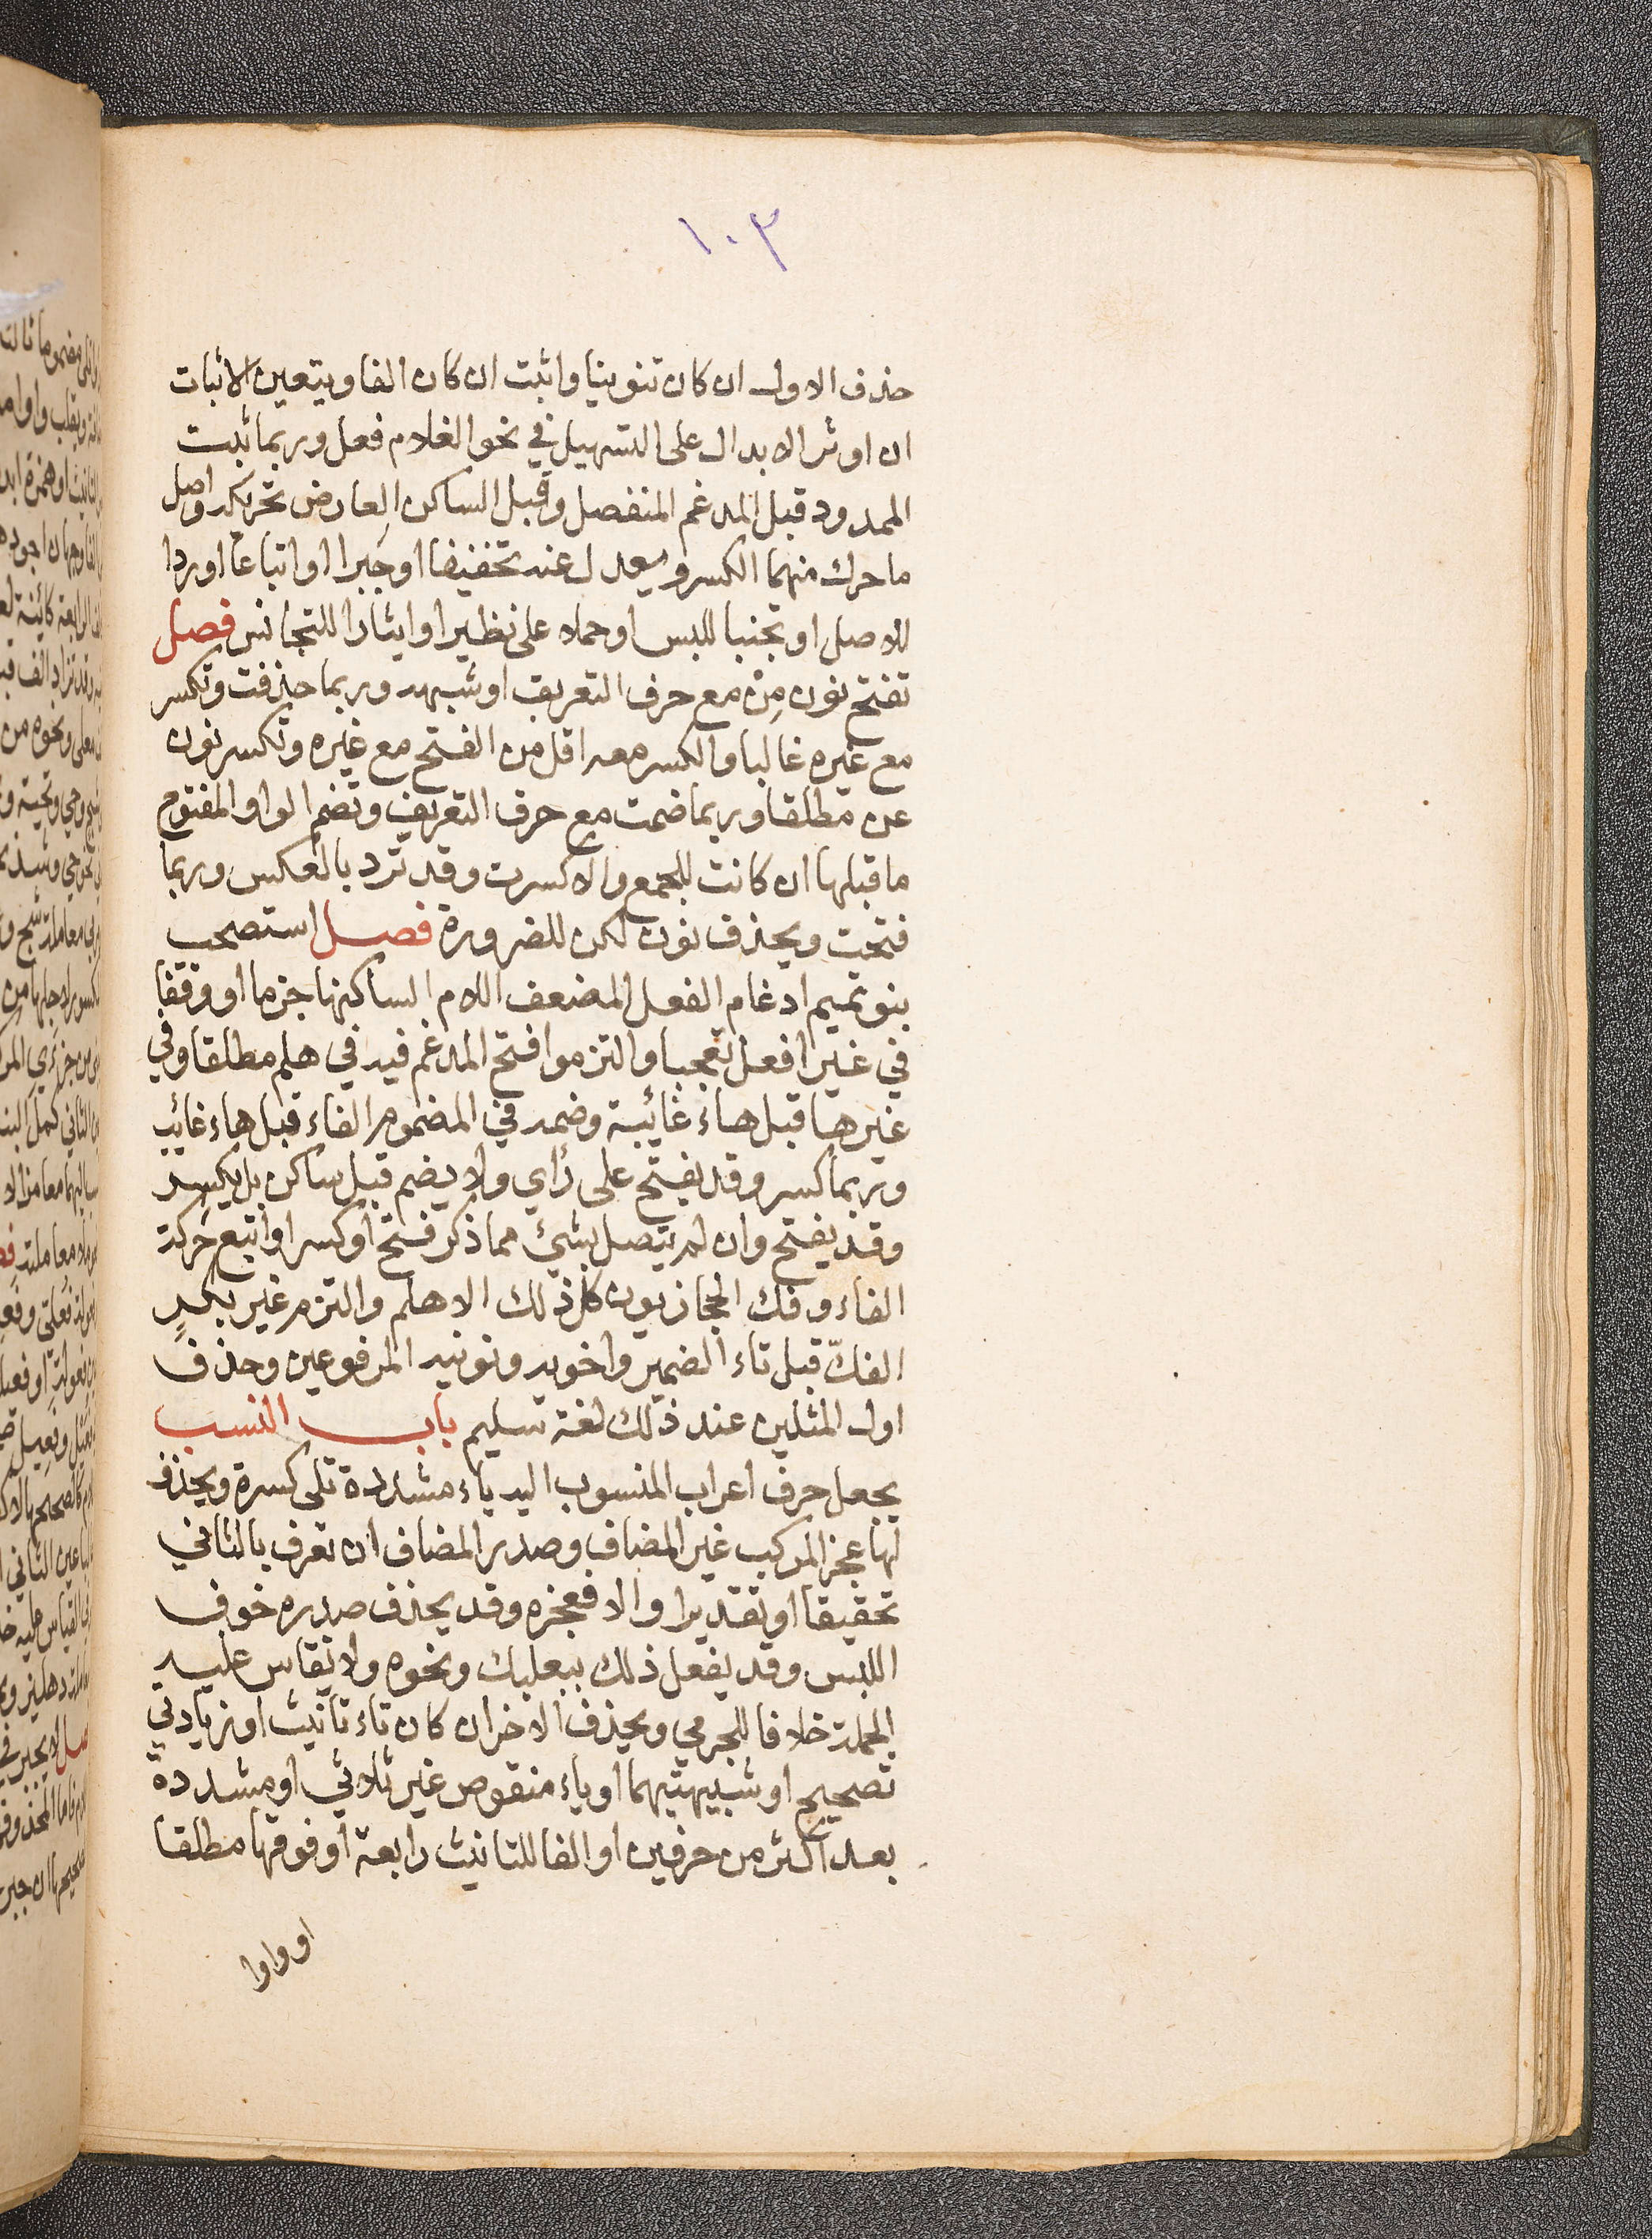 ١٠٣
حذف الاول ان كان تنوينا واثبت ان كان الفا ويتعين الاثبات
ان اوثر الابدال على التسهيل في نحو الغلام فعل وربما ثبت
الممدود قبل المدغم المنفصل وقبل الساكن العارض تحريكه واصل
ما حرك منهما الكسر ويعدل عنه تخفيفا او جبرا او اتباعا او ردا
للاصل او تجنبا للبس او حملا على نظير او ايثارا للتجانس فصل
تفتح نون مِنْ مع حرف التعريف او شبهه وربما حذفت وتكسر
مع غيره غالبا والكسر معه اقل من الفتح مع غيره وتكسر نون
عن مطلقا وربما ضمت مع حرف التعريف وتضم الواو المفتوح
ما قبلها ان كانت للجمع والا كسرت وقد ترد بالعكس وربما
فتحت ويحذف نون لكن للضرورة فصل استصحب
بنو تميم ادغام الفعل المضعف اللام الساكنها جزما او وقفا
في غير افعل تعجبا والتزموا فتح المدغم فيه في هلم مطلقا وفي
غيرها قبل هاء غائبة وضمه في المضموم الفاء قبل هاء غائب
وربما كسر وقد يفتح على رأي ولا يضم قبل ساكن بل يكسر
وقد يفتح وان لم يتصل بشيئ مما ذكر فتح او كسر او اتبع حركة
الفاء وفك الحجازيون كل ذلك الا هلم والتزم غير بكرٍ
الفكّ قبل تاء الضمير واخويه ونونيه المرفوعين وحذف
اول المثلين عند ذلك لغة سليم باب النسب
يجعل حرف اعراب المنسوب اليه ياء مشددة تلي كسرة ويحذف
لها عجز المركب غير المضاف وصدر المضاف ان تعرف بالثاني
تحقيقا او تقديرا والا فعجزه وقد يحذف صدره خوف
اللبس وقد يفعل ذلك ببعلبك ونحوه ولا تقاس عليه
الجملة خلافا للجرمي ويحذف الاخر ان كان تاء تانيث او زيادتي
تصحيح او شبيهتيهما او ياء منقوص غير ثلاثي او مشددة
بعد اكثر من حرفين او الفا للتانيث رابعة او فوقها مطلقا
او واوا